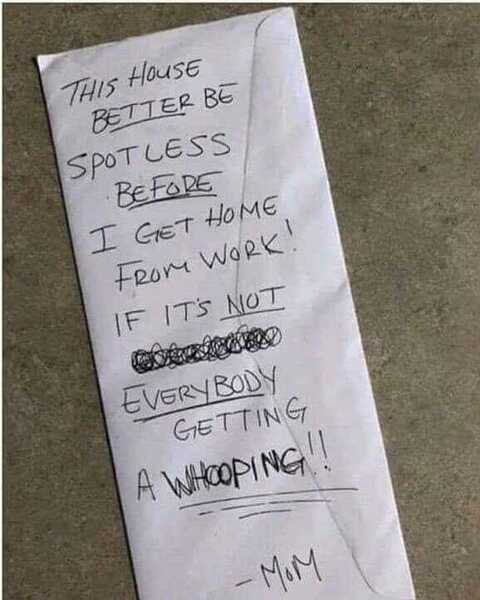 THIS HOUSE
BETTER BE
SPOTLESS
BEFORE
I GET HOME
FROM WORK!
IF IT'S NOT
EVERYBODY
GETTING
A WHOOPING!!
- MOM